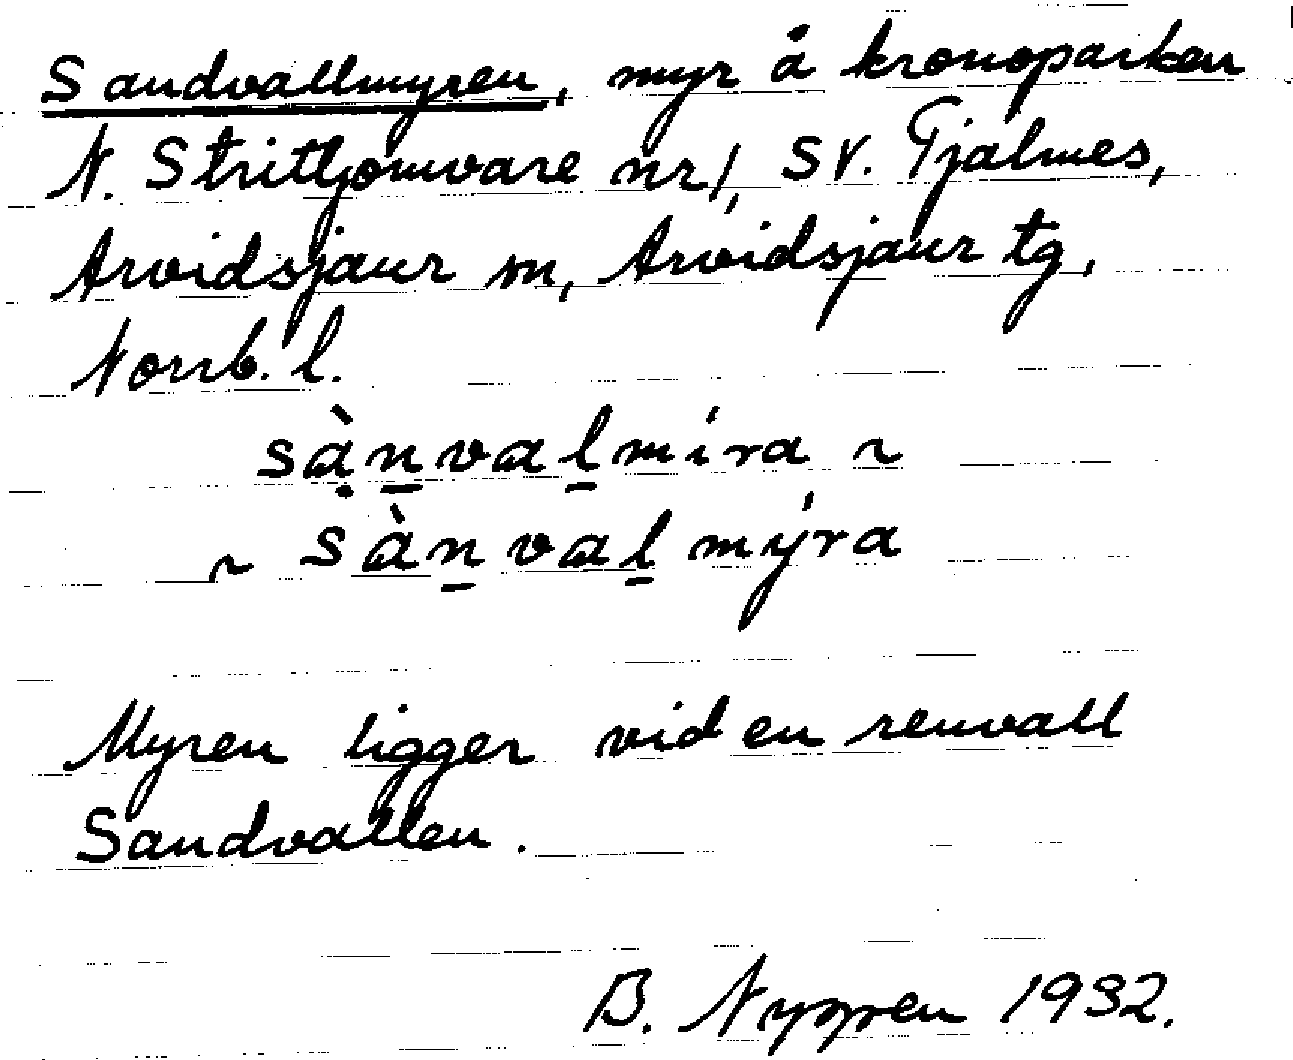 Sandvallmyren, myr å kronoparken
N. Stritjomvare nr 1, SV. Tjalmes,
Arvidsjaur sn, Arvidsjaur tg,
Norrb. l.
sạ̀n̲val̲míra ~
~ sàn̲val̲mýra
Myren ligger vid en renvall
Sandvallen.
B. Nygren 1932.